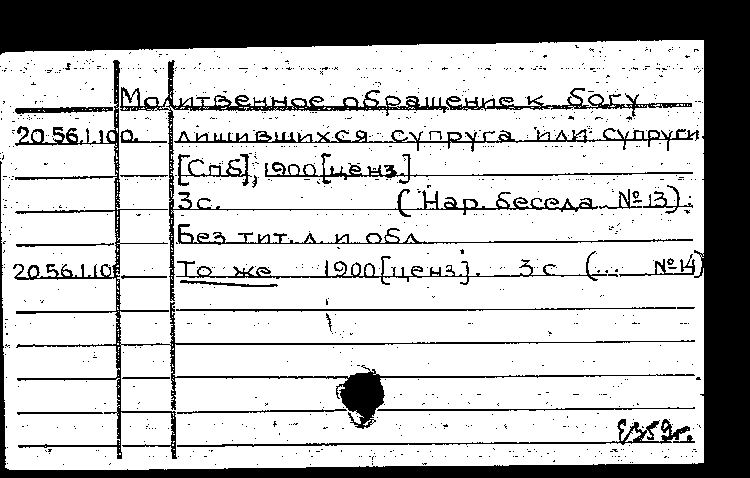 Молитвенное обращение к богу
20.56.1.100. лишившихся супруга или супруги.
[Спб], 1900 [ценз.]
3 с. (Нар. беседа №13).
Без тит. л. и обл.
20.56.1.101. То же 1900 [ценз]. 3 с (... №14)